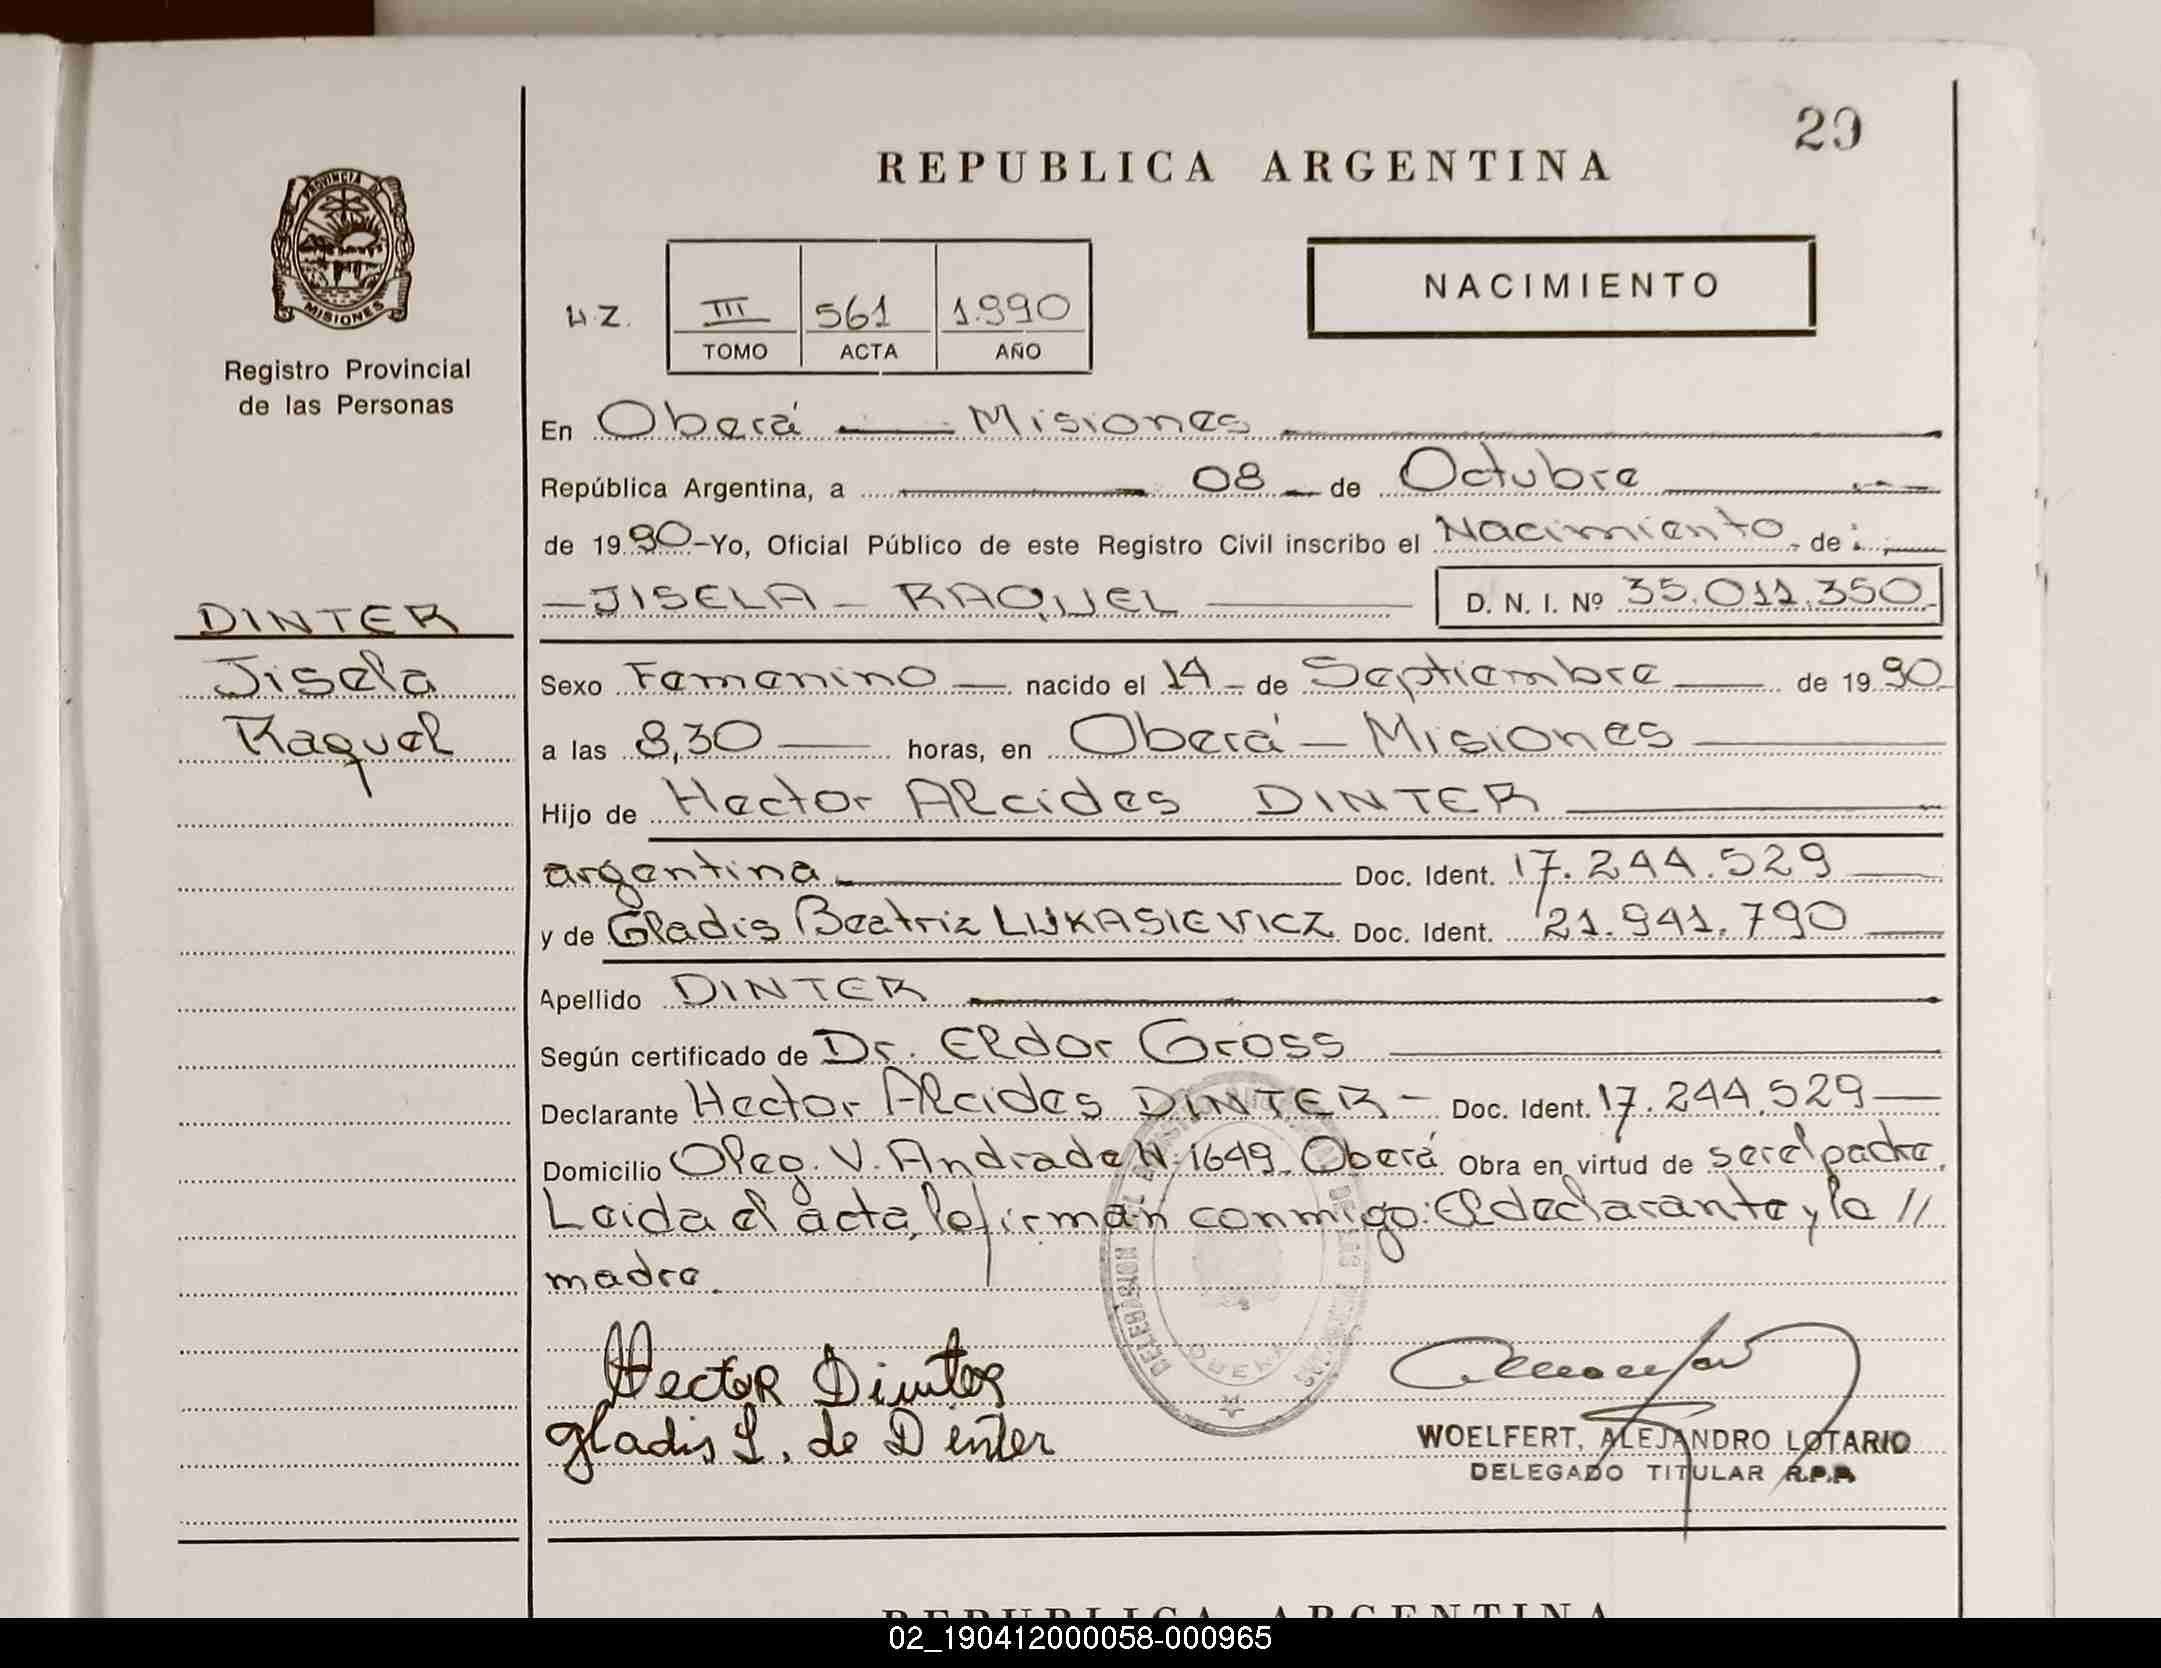 29
REPUBLICA ARGENTINA
PROVINCIA DE
MISIONES
NACIMIENTO
H.Z.
III 561 1.990
TOMO ACTA AÑO
Registro Provincial
de las Personas
En Oberá — Misiones
República Argentina, a 08 — de Octubre
de 1990 - Yo, Oficial Público de este Registro Civil inscribo el Nacimiento de:
— JISELA — RAQUEL — D. N. I. Nº 35.011.350
DINTER
Jisela
Raquel
Sexo Femenino — nacido el 14 — de Septiembre — de 1990
a las 8,30 — horas, en Oberá — Misiones
Hijo de Hector Alcides DINTER
argentina Doc. Ident. 17.244.529
y de Gladis Beatriz LUKASIEVICZ Doc. Ident. 21.941.790
Apellido DINTER
Según certificado de Dr. Eldor Gross
Declarante Hector Alcides DINTER — Doc. Ident. 17.244.529
Domicilio Oleg. V. Andrade Nº 1649 Oberá Obra en virtud de ser el padre.
Leida el acta, la firman conmigo: El declarante y la //
madre.
Hector Dinter
Gladis L. de Dinter
WOELFERT, ALEJANDRO LOTARIO
DELEGADO TITULAR R.P.P.
REPUBLICA ARGENTINA
02_190412000058-000965